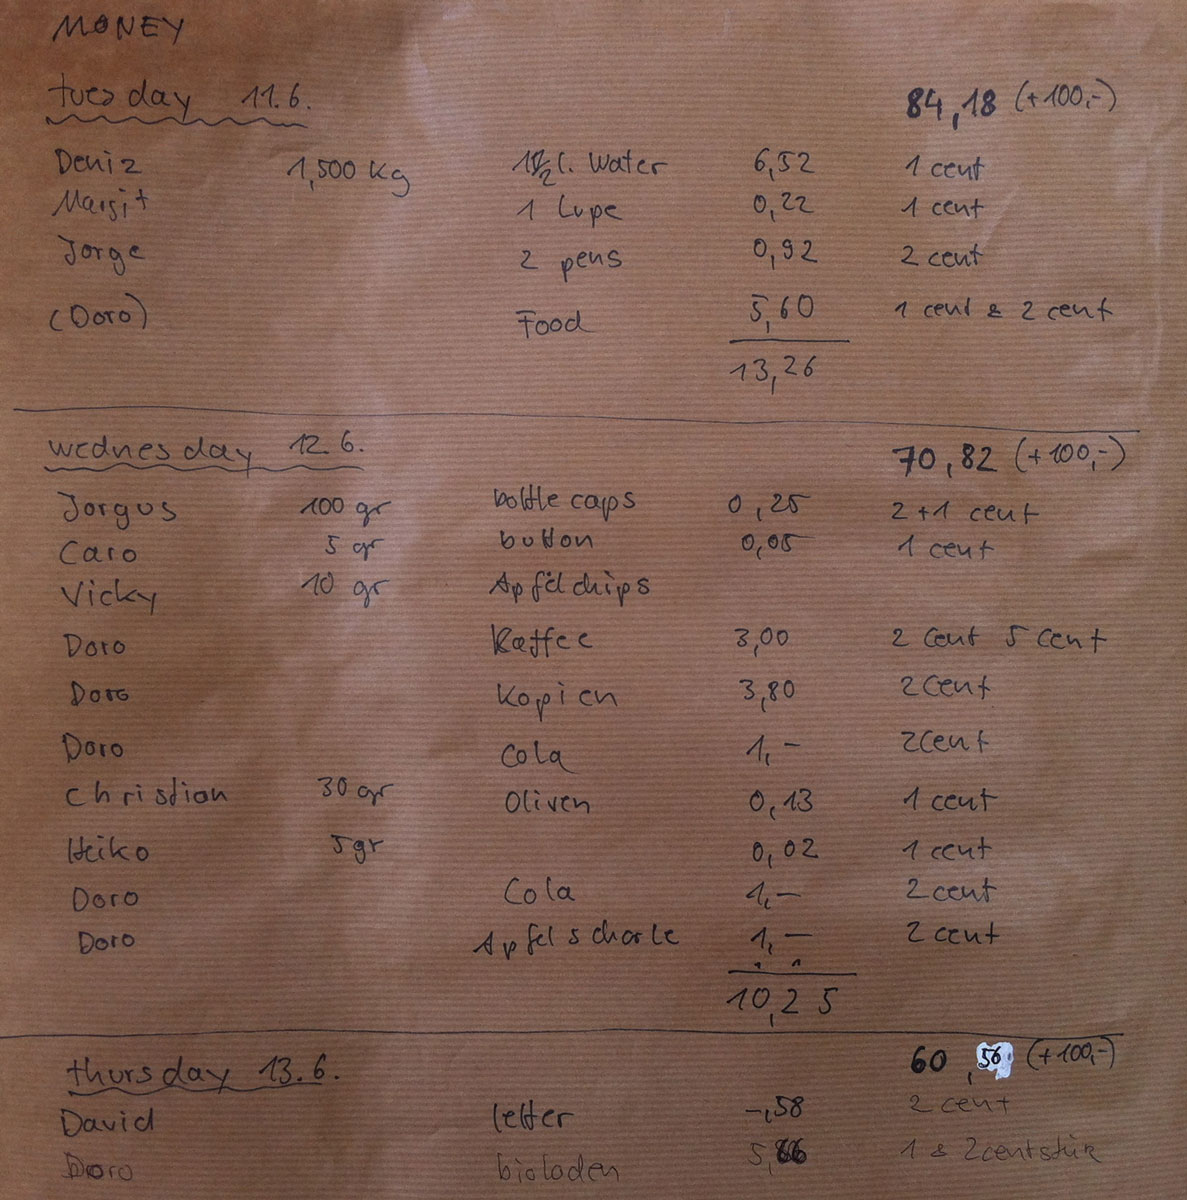 MONEY
tuesday 11.6. 84,18 (+100,-)
Deniz 1,500 kg l. Water 6,52 1 cent
Margit 1 Lupe 0,22 1 cent
Jorge 2 pens 0,92 2 cent
(Doro) Food 5,60 1 cent & 2 cent
13,26
wednesday 12.6. 70,82 (+100,-)
Jorgos 100 gr bottle caps 0,25 2+1 cent
Caro 5 gr button 0,05 1 cent
Vicky 10 gr Apfelchips
Doro Kaffee 3,00 2 cent 5 cent
Doro Kopien 3,80 2cent
Doro Cola 1,- 2cent
Christian 30 gr Oliven 0,13 1 cent
Heiko 5gr 0,02 1 cent
Doro Cola 1,- 2 cent
Doro Apfelschorle 1,- 2 cent
10,25
thursday 13.6. 60,56 (+100,-)
David letter -,58 2 cent
Doro bioladen 1 & 2centstük